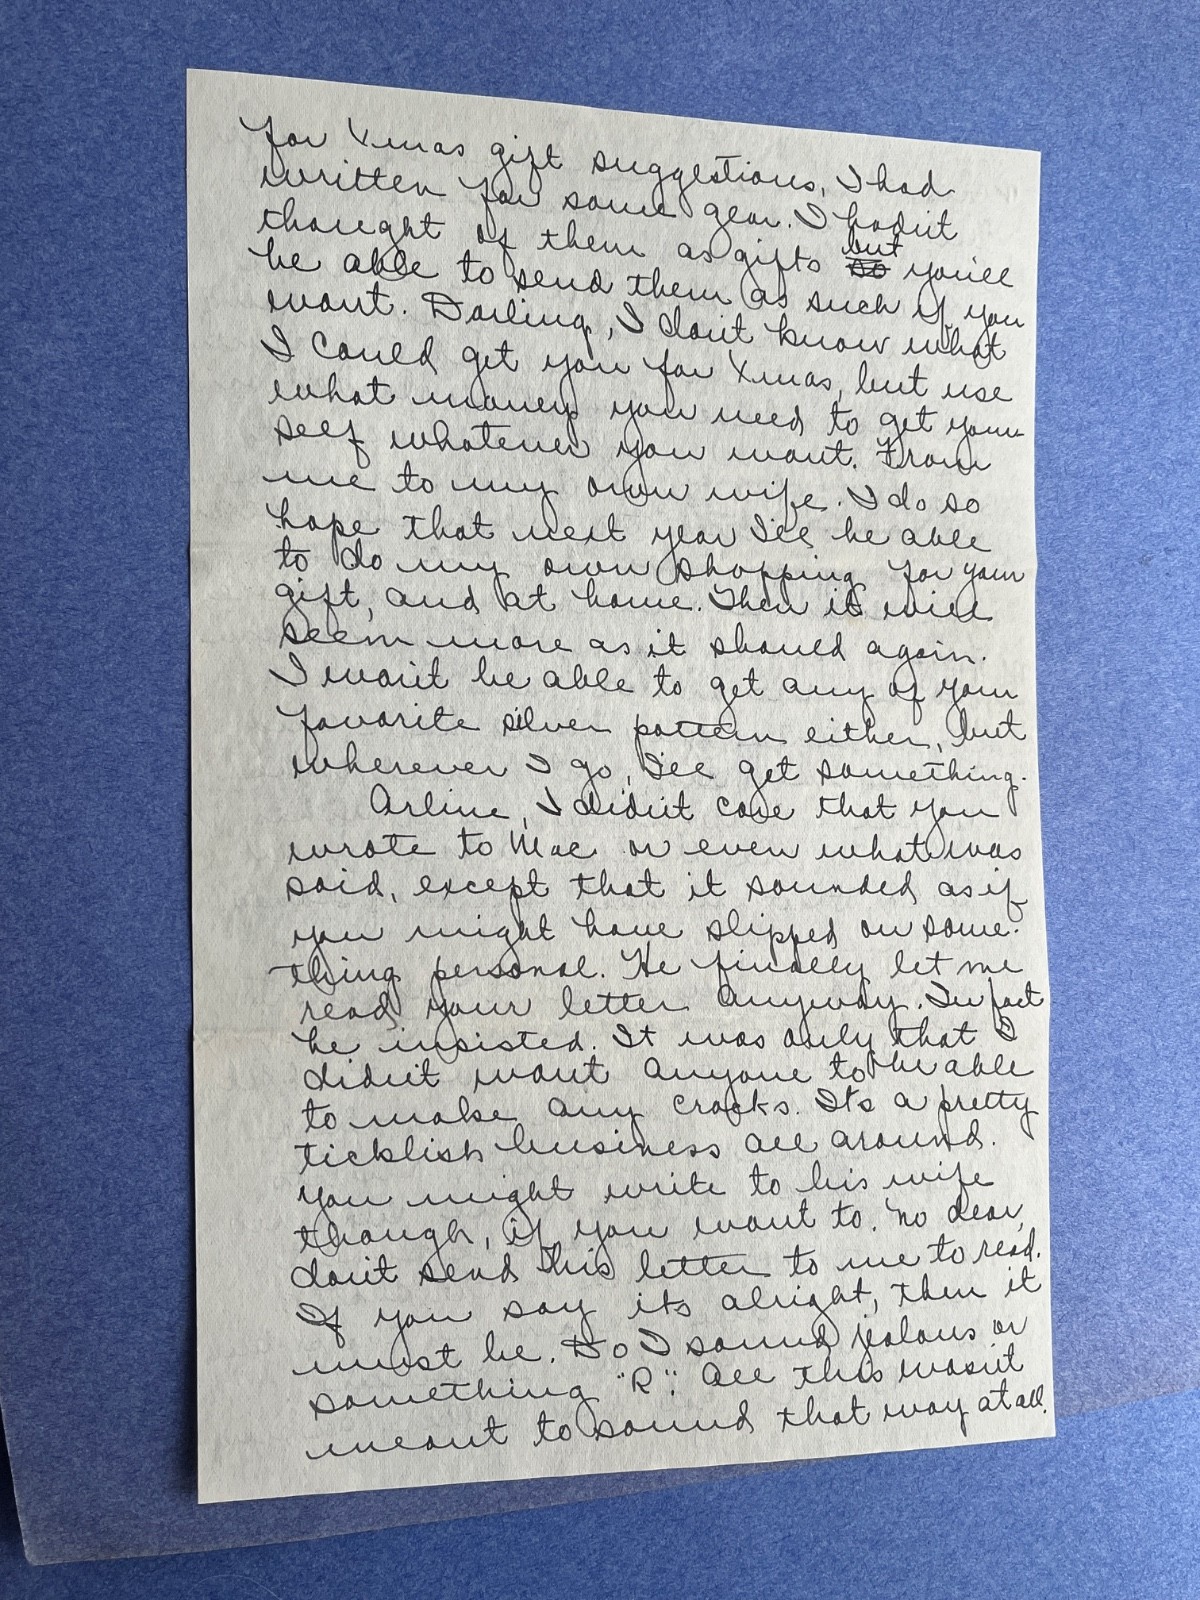 for Xmas gift suggestions, I had
written for some gear. I hadn't
thought of them as gifts ~~so~~ but you'll
be able to send them as such if you
want. Darling, I don't know what
I could get you for Xmas, but use
what money you need to get your-
self whatever you want. From
me to my own wife. I do so
hope that next year I'll be able
to do my own shopping for your
gift, and at home. Then it will
seem more as it should again.
I won't be able to get any of your
favorite silver pattern either, but
wherever I go, I'll get something.
Arline, I didn't care that you
wrote to Mac or even what was
said, except that it sounded as if
you might have slipped on some-
thing personal. He finally let me
read your letter anyway. In fact
he insisted. It was only that I
didn't want anyone to be able
to make any cracks. Its a pretty
ticklish business all around.
You might write to his wife
though, if you want to. No dear,
don't send his letter to me to read.
If you say its alright, then it
must be. Do I sound jealous or
something "R". All this wasn't
meant to sound that way at all.